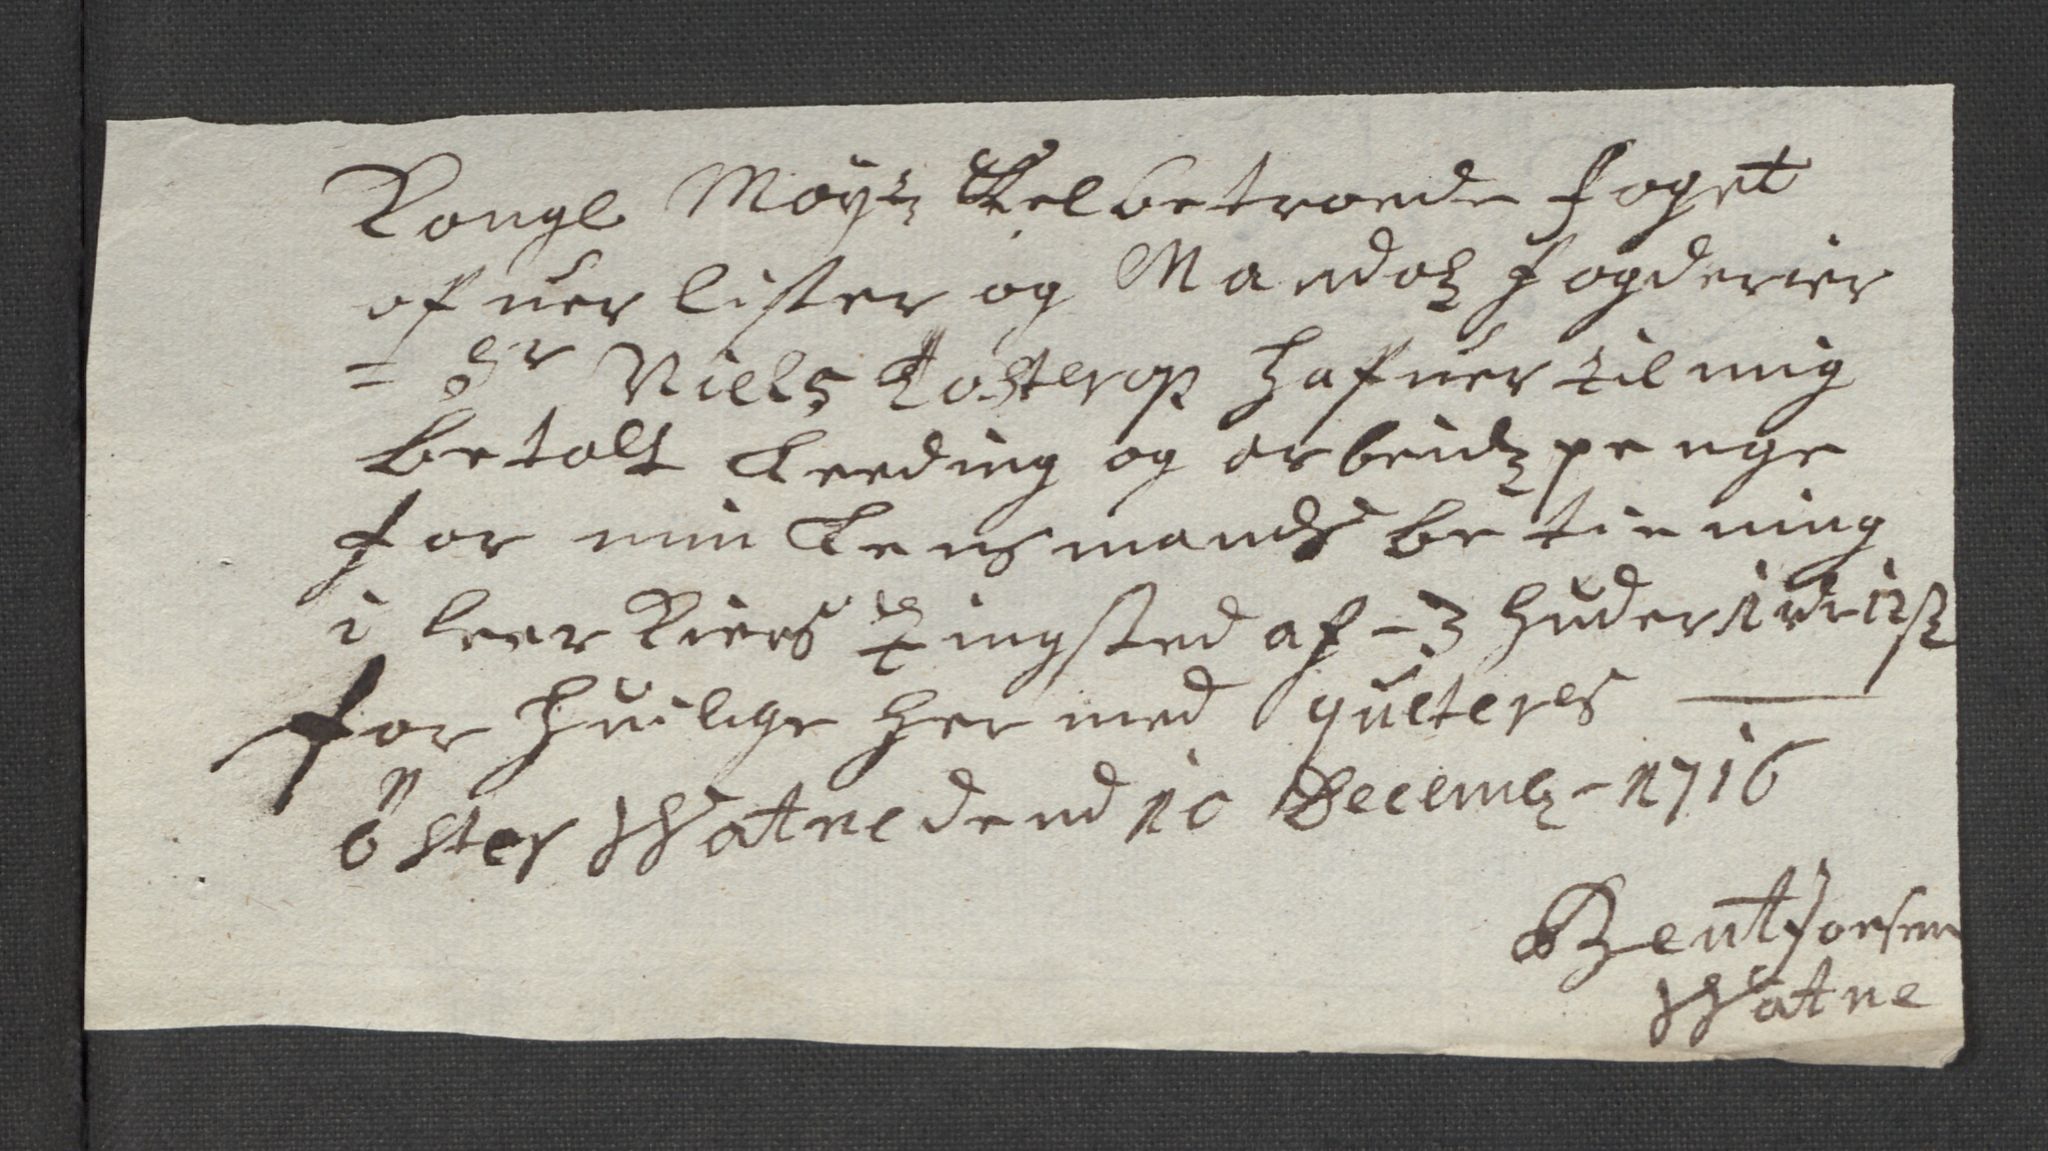 Kongl Mayᵗᶻ Velbetroede foget
ofuer lister og Mandalz fogderier
= Sr Niels Kosterop hafuer til mig
betalt Leeding og arbeidz penge
for min Lensmands betiening
i leer Kiers tingsted af - 3 huder 1 rdr 12 ß
for huilche her med quiteres
öster Watne dend 10 Decemz - 1716
Bent Joersen
Watne